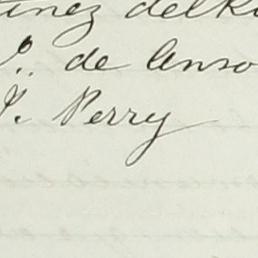 tinez del Ri
P. de Anso
J. Perry